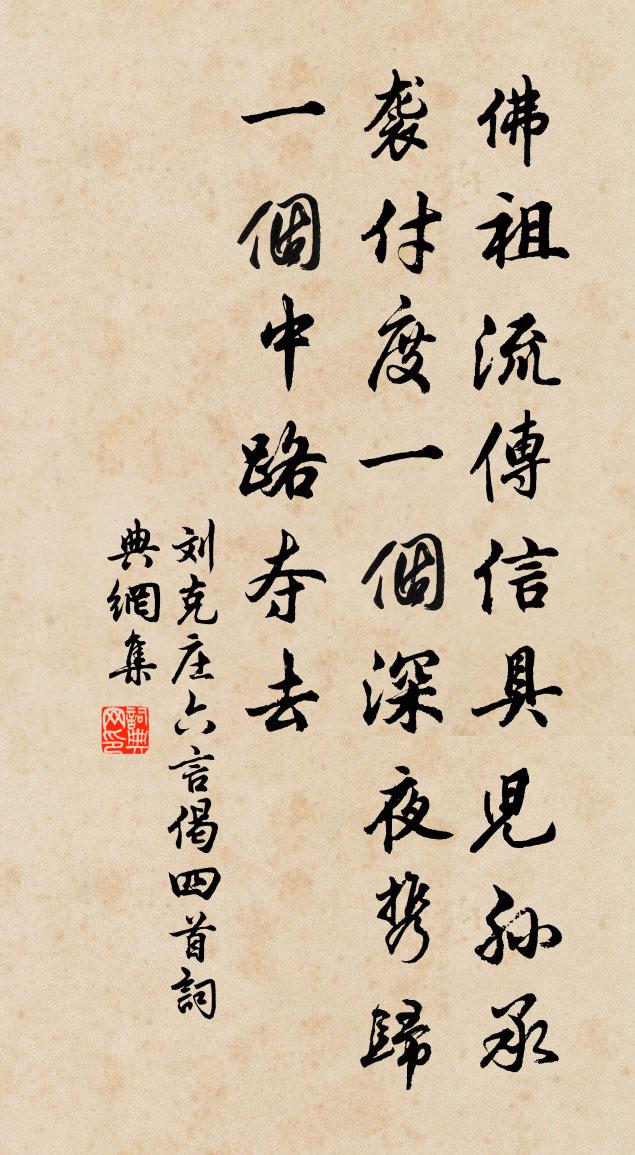 佛祖流傳信具兒孙承
袭付度一個深夜携歸
一個中路夺去
刘克庄六言偈四首詞
典網集
詞典
网印